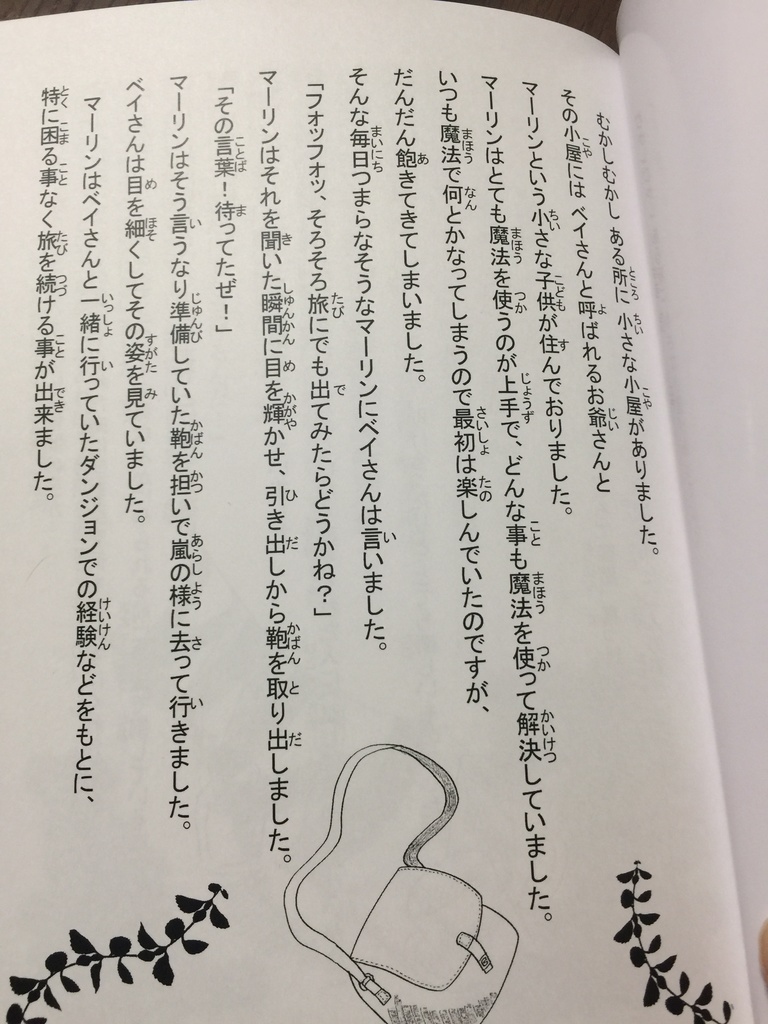 むかしむかし ある所に 小さな小屋がありました。
その小屋には ベイさんと呼ばれるお爺さんと
マーリンという小さな子供が住んでおりました。
マーリンはとても魔法を使うのが上手で、どんな事も魔法を使って解決していました。
いつも魔法で何とかなってしまうので最初は楽しんでいたのですが、
だんだん飽きてきてしまいました。
そんな毎日つまらなそうなマーリンにベイさんは言いました。
「フォッフォッ、そろそろ旅にでも出てみたらどうかね?」
マーリンはそれを聞いた瞬間に目を輝かせ、引き出しから鞄を取り出しました。
「その言葉!待ってたぜ!」
マーリンはそう言うなり準備していた鞄を担いで嵐の様に去って行きました。
ベイさんは目を細くしてその姿を見ていました。
マーリンはベイさんと一緒に行っていたダンジョンでの経験などをもとに、
特に困る事なく旅を続ける事が出来ました。